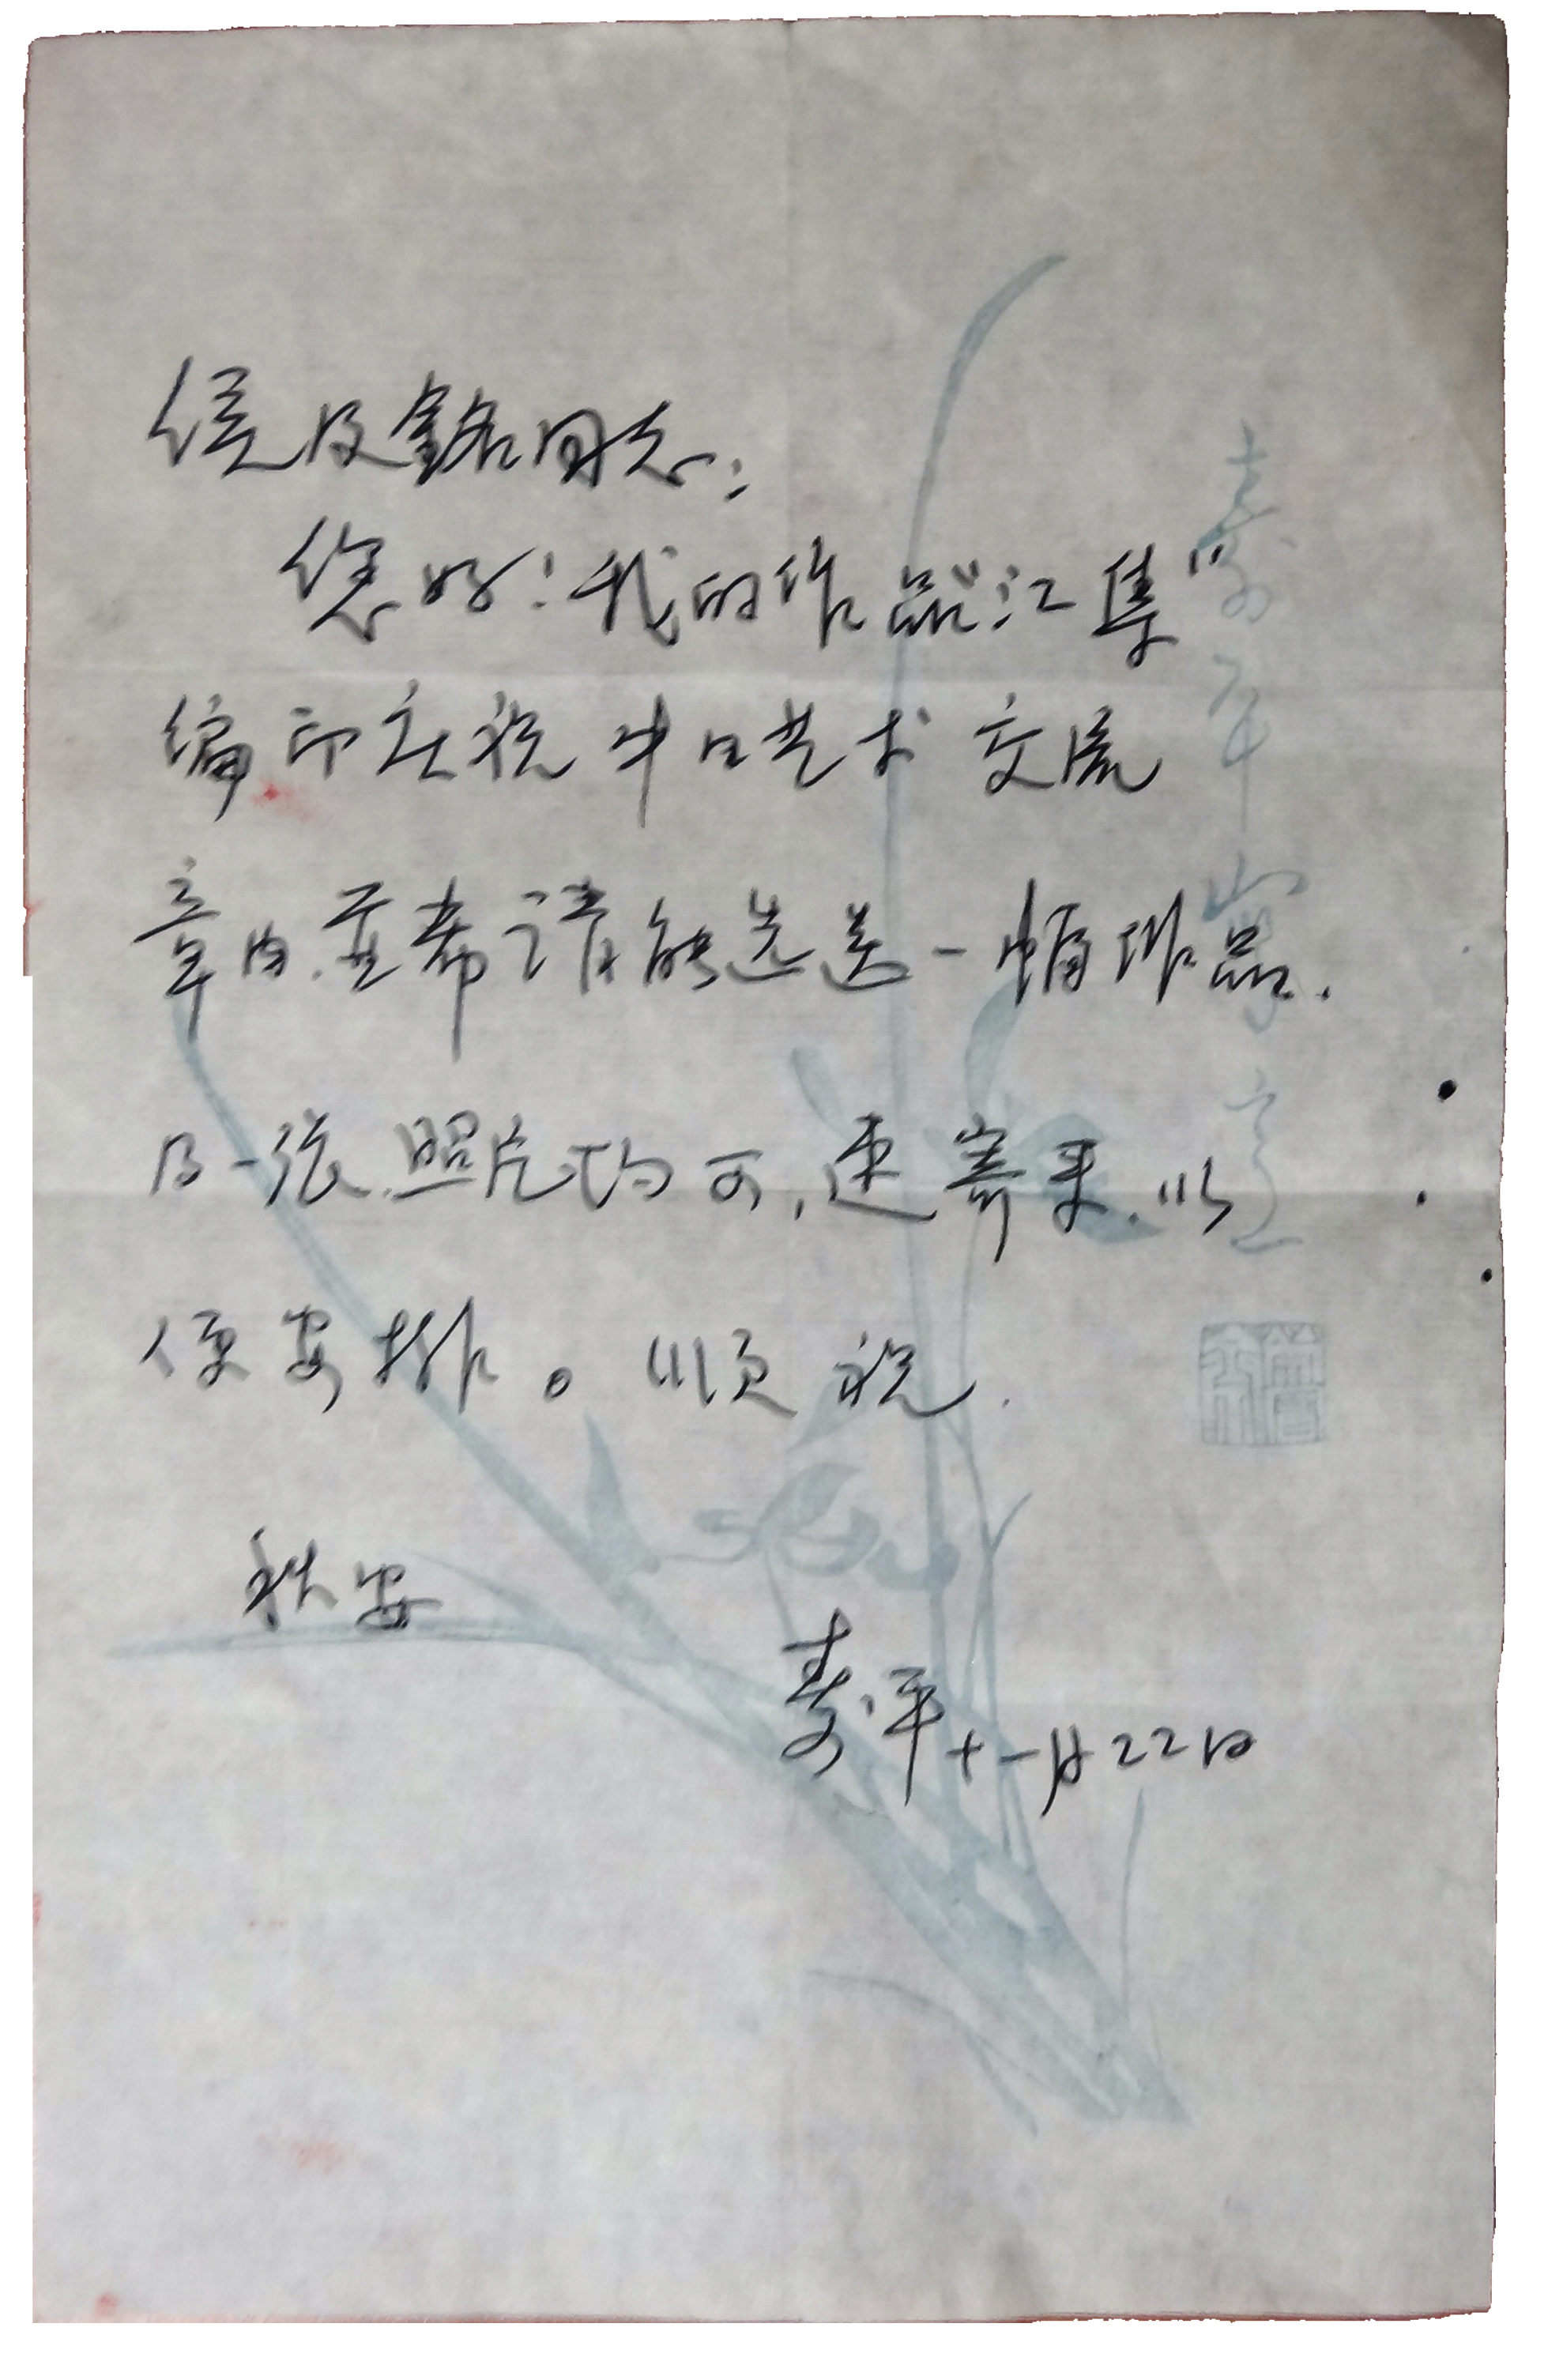 侯及銘同志:
您好!我的作品"汇集"
编印在祝中日艺术交流
章内.并希请能选送一幅作品.
及一张照片均可,速寄来.以
便安排。顺祝.
秋安
寿平十一月22日